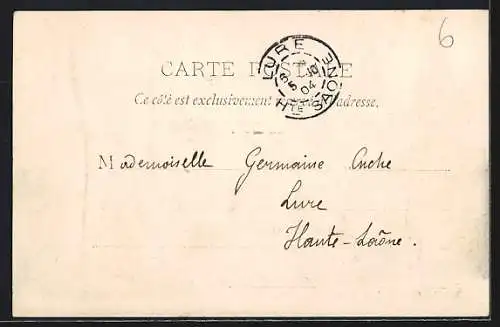 6
CARTE POSTALE
Ce côté est exclusivement réservé à l'adresse.
LURE
5
04
Hte SAONE
Mademoiselle Germaine Cuche
Lure
Haute-Saône.